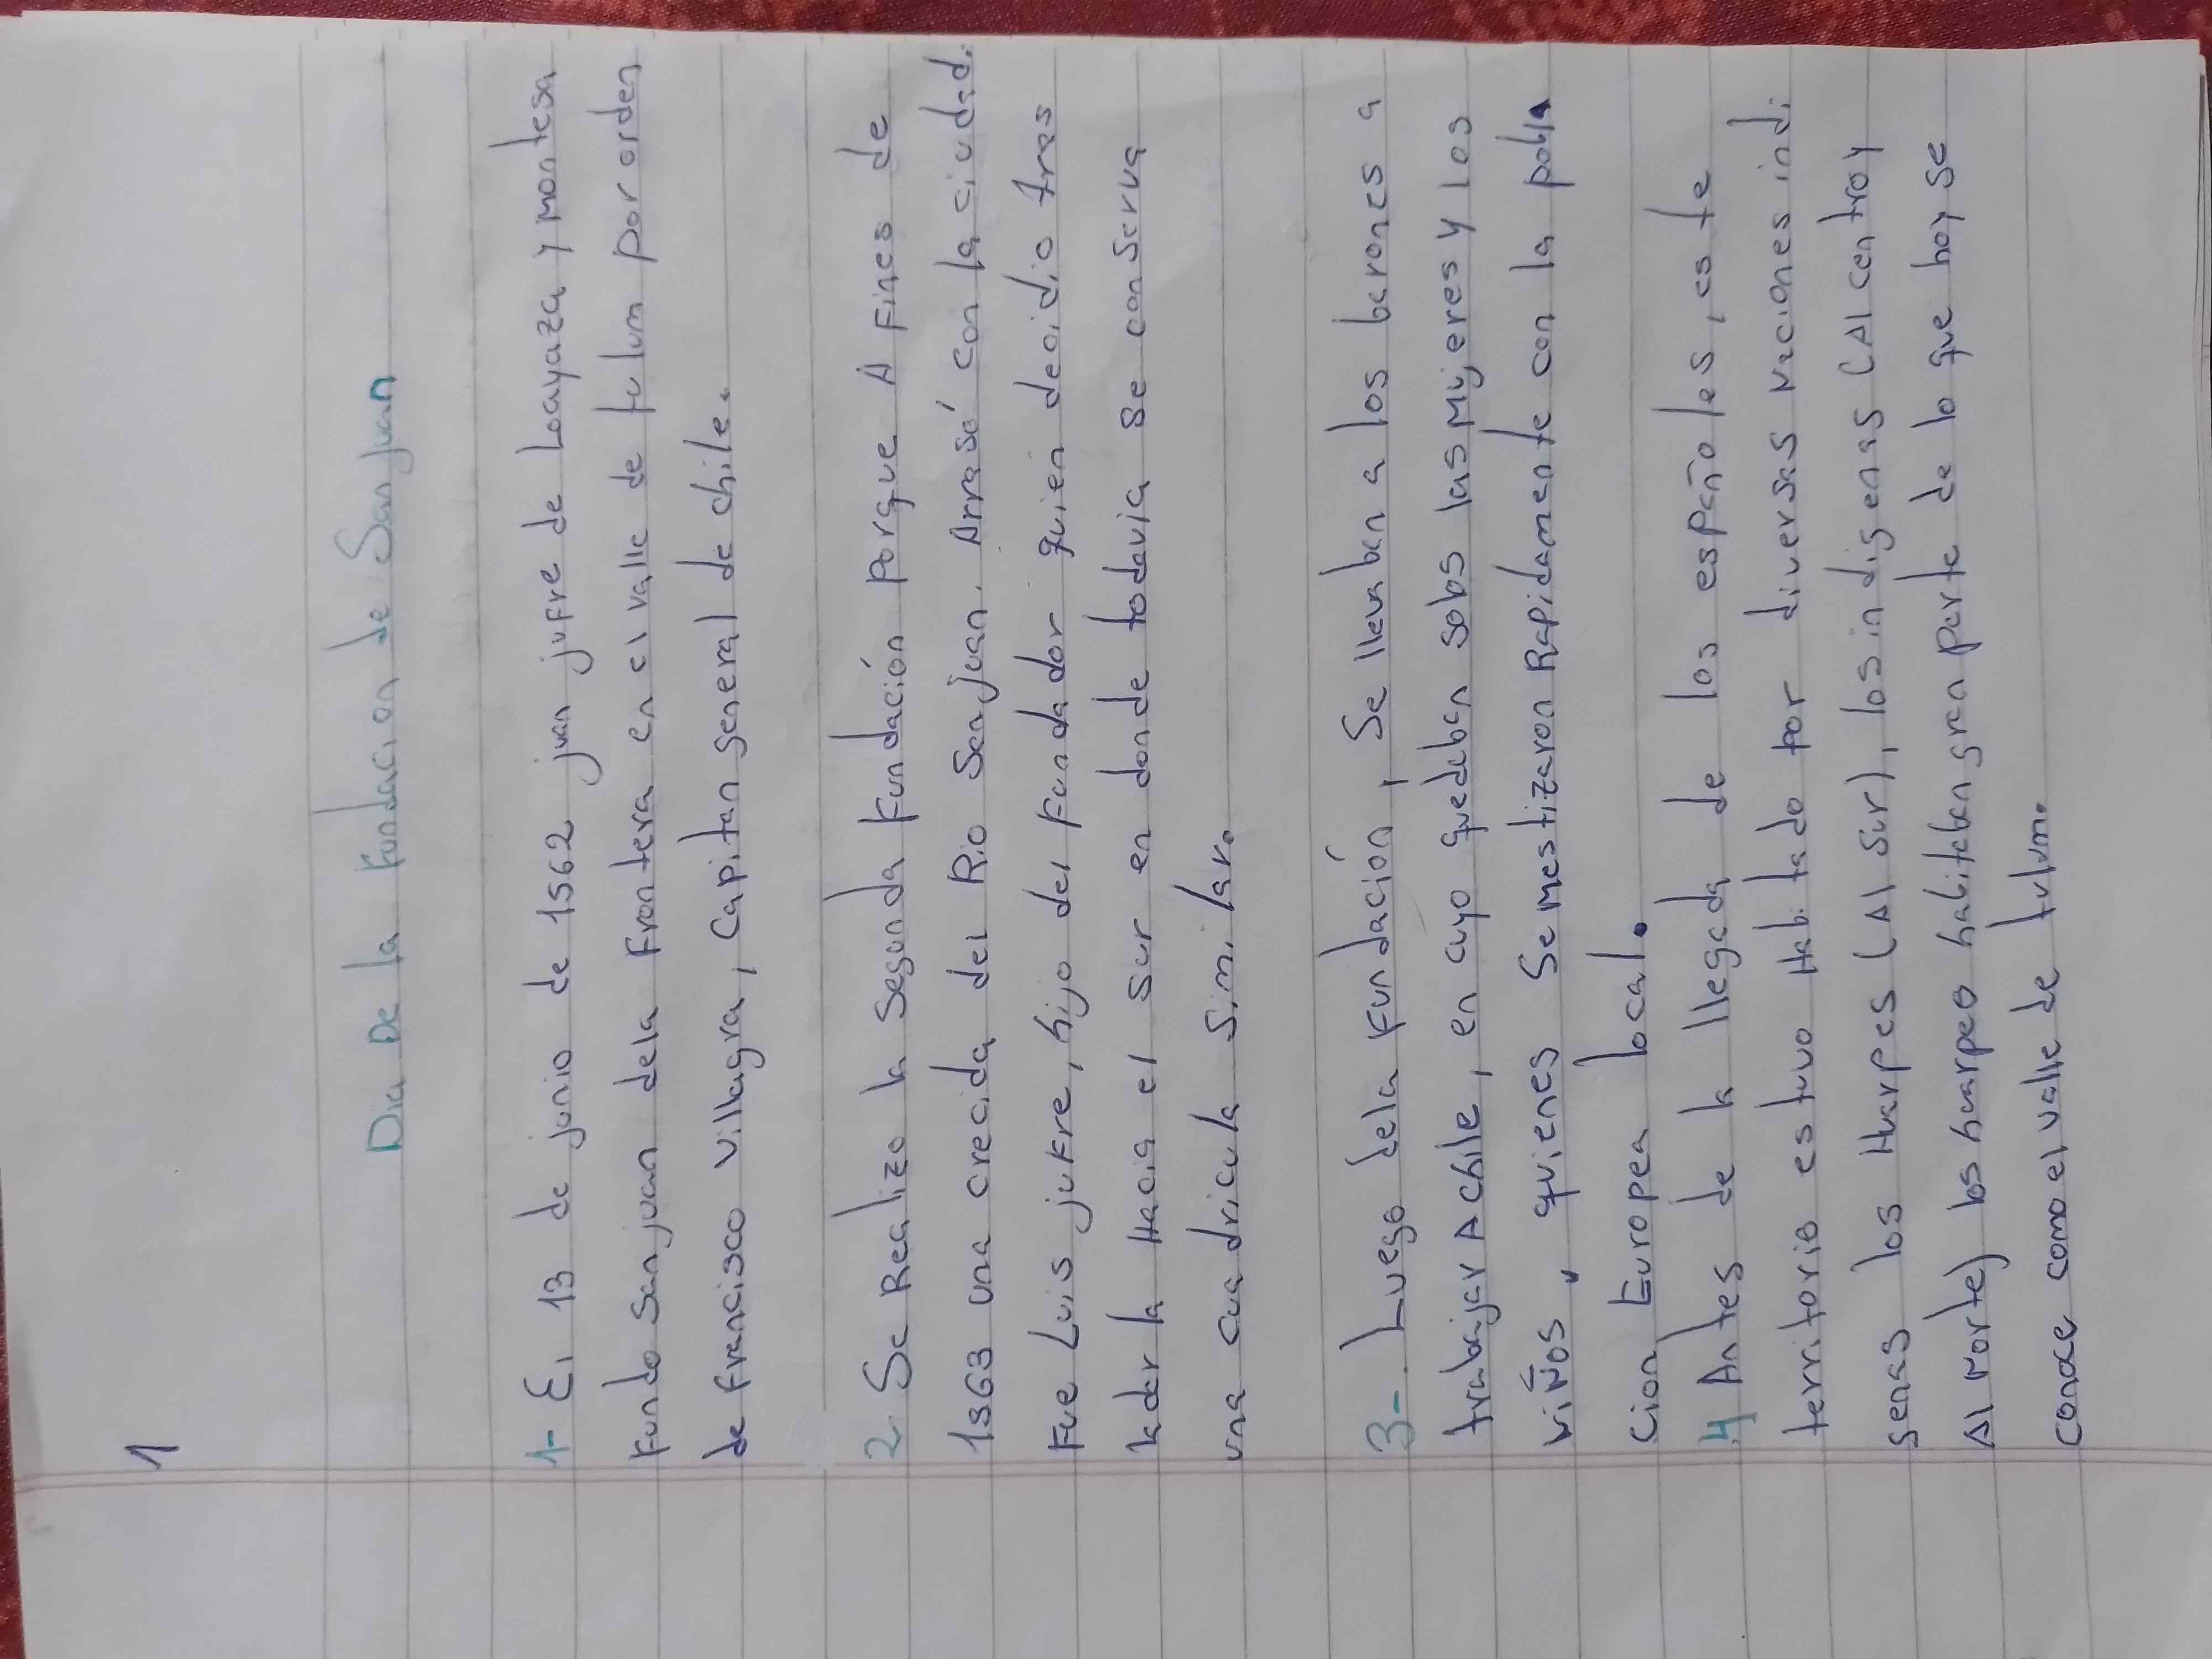 1
Dia De la Fundacion de San juan
1- El 13 de junio de 1562 juan jufre de Loayaza y montesa
Fundo san juan dela Frontera en el valle de tulum por orden
de Francisco villagra, Capitan general de chile.
2. Se Realizo la segunda Fundación porque A Fines de
1563 una crecida del Rio San juan. Arrasó con la ciudad.
Fue Luis jufre, hijo del Fundador quien decidio tras
ladar la Hacia el sur en donde todavia se conserva
una cuadricula similar.
3-. Luego dela Fundación, Se llevaban a los barones a
trabajar A chile, en cuyo quedaban solos las mujeres y los
niños, quienes se mestizaron Rapidamente con la pobla
cion Europea local.
4 Antes de la llegada de los españoles, este
territorio estuvo Habitado por diversas Naciones indi
genas los Huarpes (Al sur), los indigenas (Al centro y
Al norte) los huarpes habitaban gran parte de lo que hoy se
conoce como el valle de tulum.